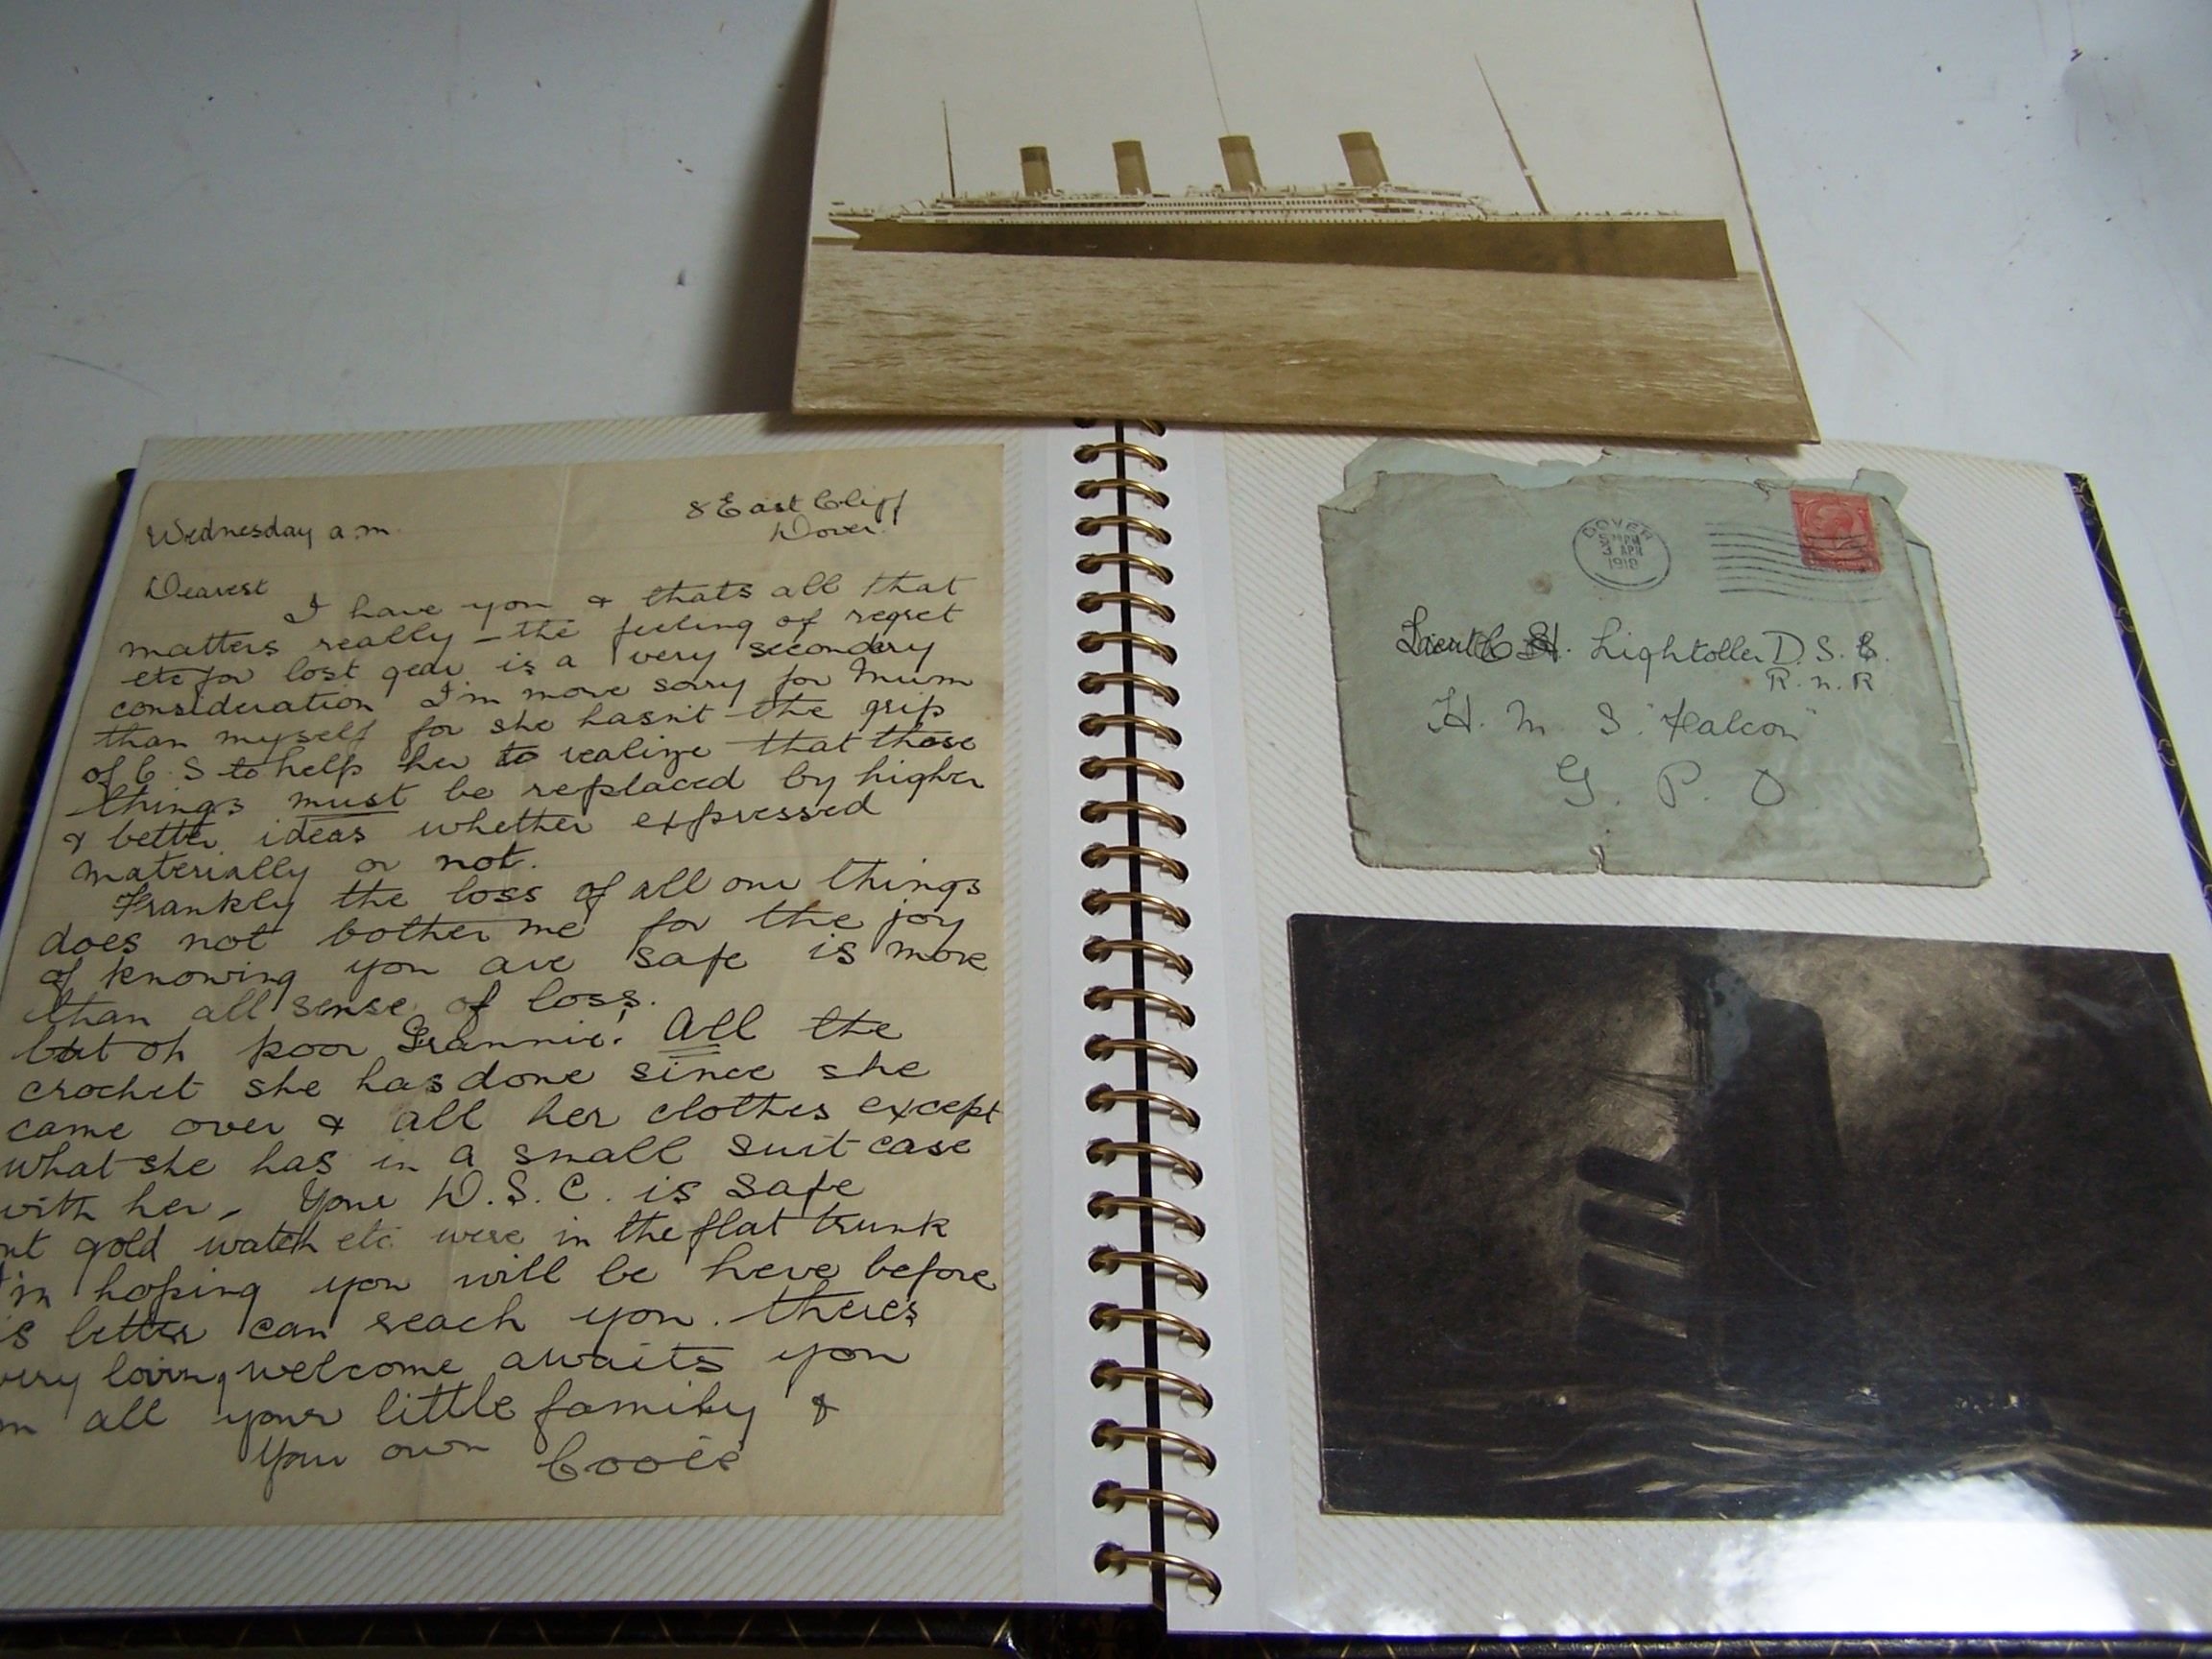 8 East Cliff
Dover.
Wednesday a.m.
Dearest
I have you & thats all that
matters really – the feeling of regret
etc for lost gear is a very secondary
consideration I'm more sorry for Mum
than myself for she hasn't the grip
of C. S to help her to realize that those
things must be replaced by higher
& better ideas whether expressed
materially or not.
Frankly the loss of all our things
does not bother me for the joy
of knowing you are safe is more
than all sense of loss.
but oh poor Grannie! All the
crochet she has done since she
came over & all her clothes except
what she has in a small suit case
with her. Your D.S.C. is safe
gold watch etc were in the flat trunk
hoping you will be here before
letter can reach you. theres
loving welcome awaits you
all your little family &
Your own Cooie
DOVER
5 PM
3 APR
1918
Lieut C H. Lightoller D. S. C.
R. N. R
H. M S. "Falcon"
G. P. O